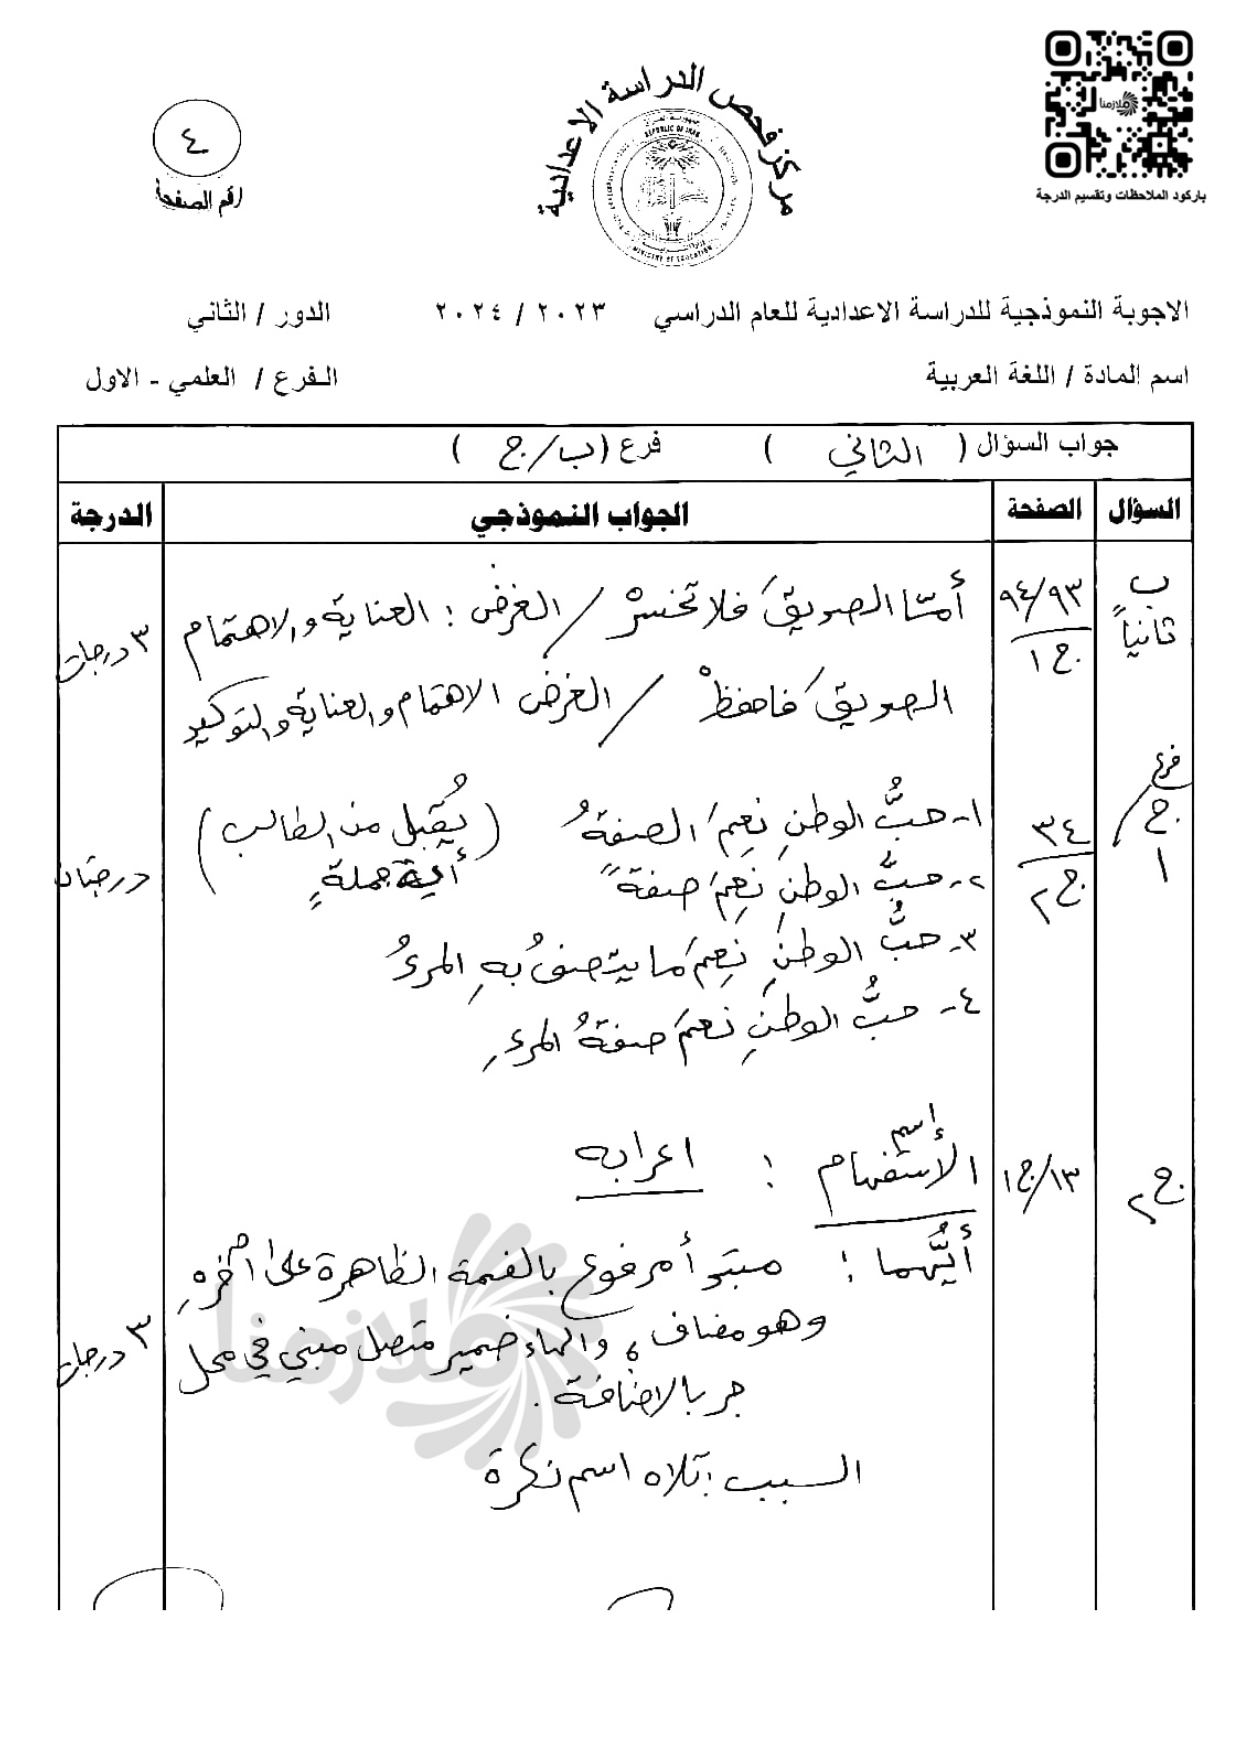 ملازمنا
باركود الملاحظات وتقسيم الدرجة
مركز فحص الدراسة الاعدادية
REPUBLIC OF IRAQ
MINISTRY OF EDUCATION
٤
رقم الصفحة
الاجوبة النموذجية للدراسة الاعدادية للعام الدراسي ٢٠٢٣ / ٢٠٢٤ الدور / الثاني
اسم المادة / اللغة العربية الفرع / العلمي - الاول
جواب السؤال ( الثاني ) فرع ( ب/ج )
السؤال الصفحة الجواب النموذجي الدرجة
ب ثانياً ٩٤/٩٣ ج١ أمّا الصديقَ فلا تخسرْ / الغرض : العناية والاهتمام ٣ درجات
الصديقَ فاحفظْ / الغرض الاهتمام والعناية والتوكيد
فرع ج / ١ ٣٤ ج٢ ١- حبُّ الوطنِ نِعمَ الصفةُ (يُقبل من الطالب أية جملةٍ) درجتان
٢- حبُّ الوطنِ نِعمَ صفةً
٣- حبُّ الوطنِ نِعمَ ما يتصفُ بهِ المرءُ
٤- حبُّ الوطنِ نِعمَ صفةُ المرءِ
ج٢ ١٣/ج١ إسم الأستفهام : اعرابه
أيُّهما : مبتدأ مرفوع بالضمة الظاهرة على آخرهِ
وهو مضاف ، والهاء ضمير متصل مبني في محل ٣ درجات
جر بالاضافة .
السبب : تلاه اسم نكرة
ملازمنا